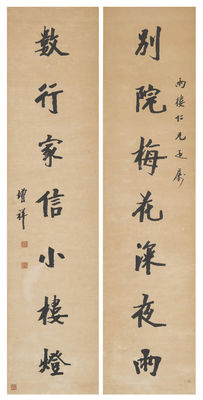 別院梅花深夜雨
雨樓仁兄正屬
數行家信小樓燈
增祥